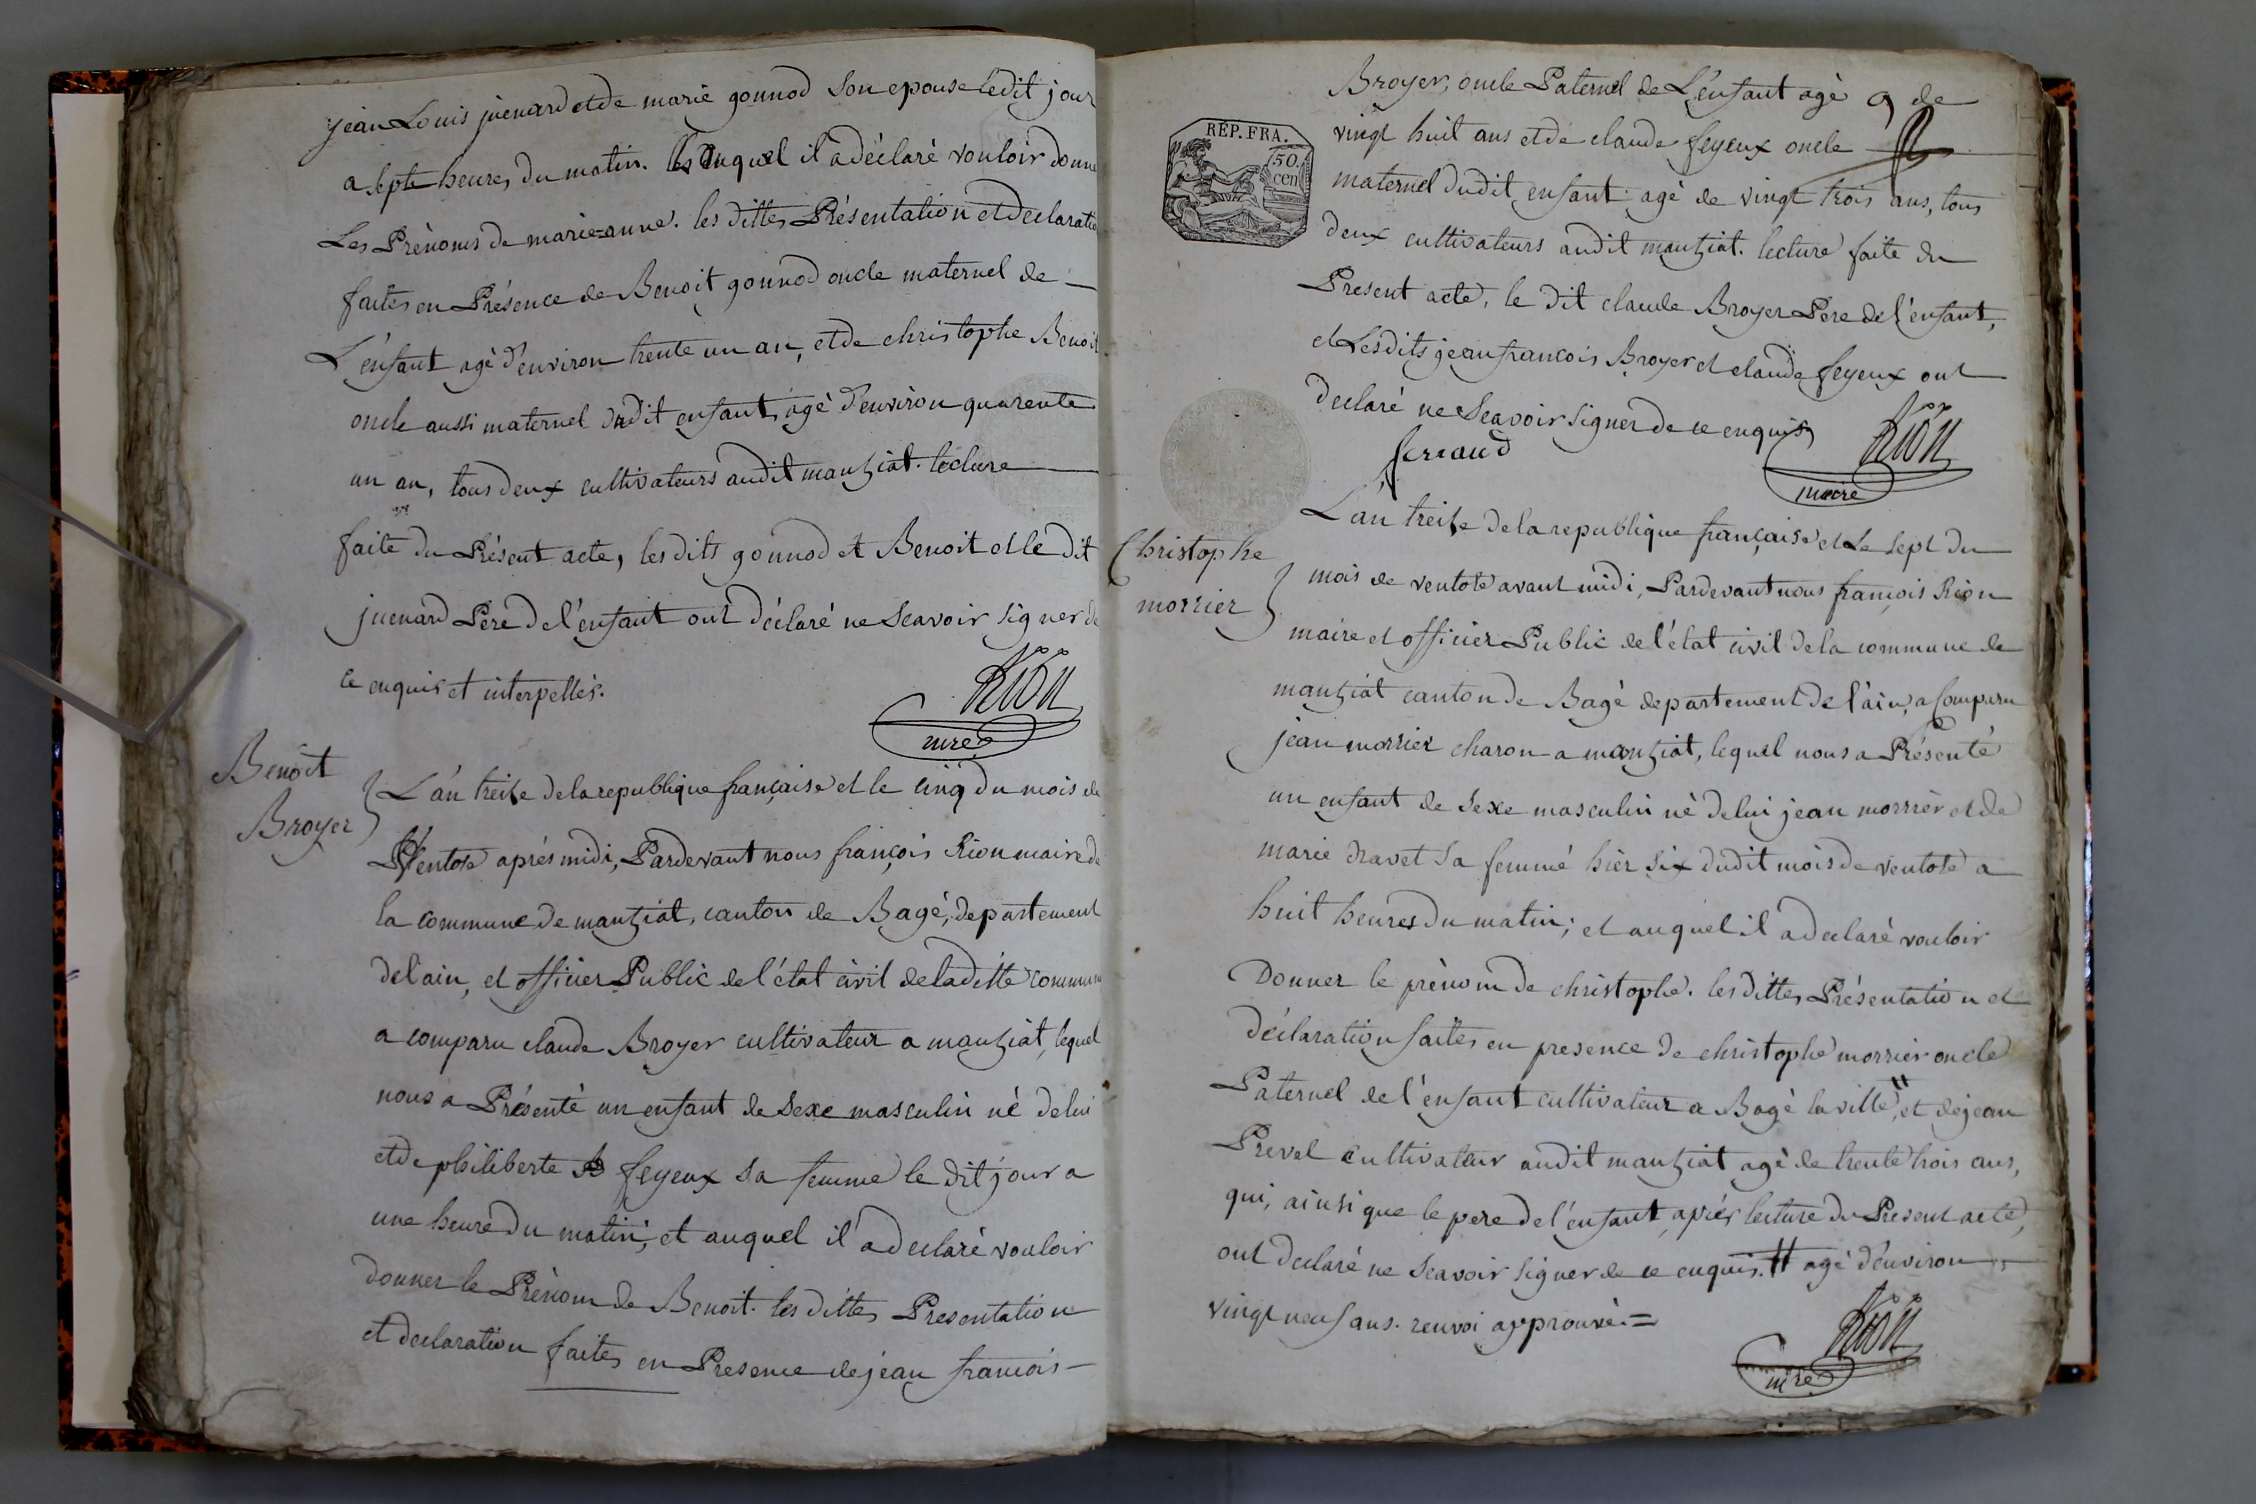 jean Louis juenard et de marie gonnod Son epouse ledit jour
a Sept heures du matin. auquel il a déclaré vouloir donne
Les Prènoms de marie=anne. les dittes Présentation et declaratio
faites en Présence de Benoit gonnod oncle maternel de
L'enfant agé d'environ trente un an, et de christophe Benoit
oncle aussi maternel dudit enfant, agé d'environ quarente
un an, tous deux cultivateurs audit mantziat. lecture
faite du Présent acte, les dits gonnod et Benoit et le dit
juenard Père de l'énfant ont déclaré ne Scavoir signer de
ce enquis et interpellés.
Rion
mre
Benoit
Broyer
L'an treize de la republique française et le cinq du mois de
Ventose aprés midi, Pardevant nous françois Rion maire de
la commune de mantziat, canton de Bagé, departement
de l'ain, et officier Public de l'état civil de la ditte commune
a comparu claude Broyer cultivateur a mantziat, lequel
nous a Présenté un enfant de Sexe masculin né de lui
et de philiberte feyeux Sa femme le dit jour a
une heure du matin, et auquel il a declaré vouloir
donner le Prénom de Benoit. les dittes Presentation
et declaration faites en Presence de jean francois
Broyer, oncle Paternel de L'énfant agé de
RÉP. FRA.
50
cen
vingt huit ans et de claude feyeux oncle
maternel dudit enfant agé de vingt trois ans, tous
deux cultivateurs audit mantziat. lecture faite du
Present acte, le dit claude Broyer Pere de l'enfant,
et Lesdits jean francois Broyer et claude feyeux ont
declaré ne Scavoir signer de ce enquis
Rion
maire
L'an treize de la republique française et Le Sept du
Christophe
morrier
mois de ventose avant midi, Pardevant nous françois Rion
maire et officier Public de l'état civil de la commune de
mantziat canton de Bagé departement de l'ain, a Comparu
jean morrier charon a mantziat, lequel nous a Présenté
un enfant de Sexe masculin né de lui jean morrier et de
marie dravet Sa femme hier Six dudit mois de ventose a
huit heures du matin; et auquel il a declaré vouloir
Donner le prènom de christophe. les dittes Présentation et
déclaration faites en presence de christophe morrier oncle
Paternel de l'énfant cultivateur a Bagé la ville #, et de jean
Prevel Cultivateur audit mantziat agé de trente trois ans,
qui, ainsi que le pere de l'enfant, aprés lecture du Present acte,
ont declaré ne Scavoir signer de ce enquis. # agé d'environ
vingt neuf ans. renvoi approuvé. =
Rion
mre